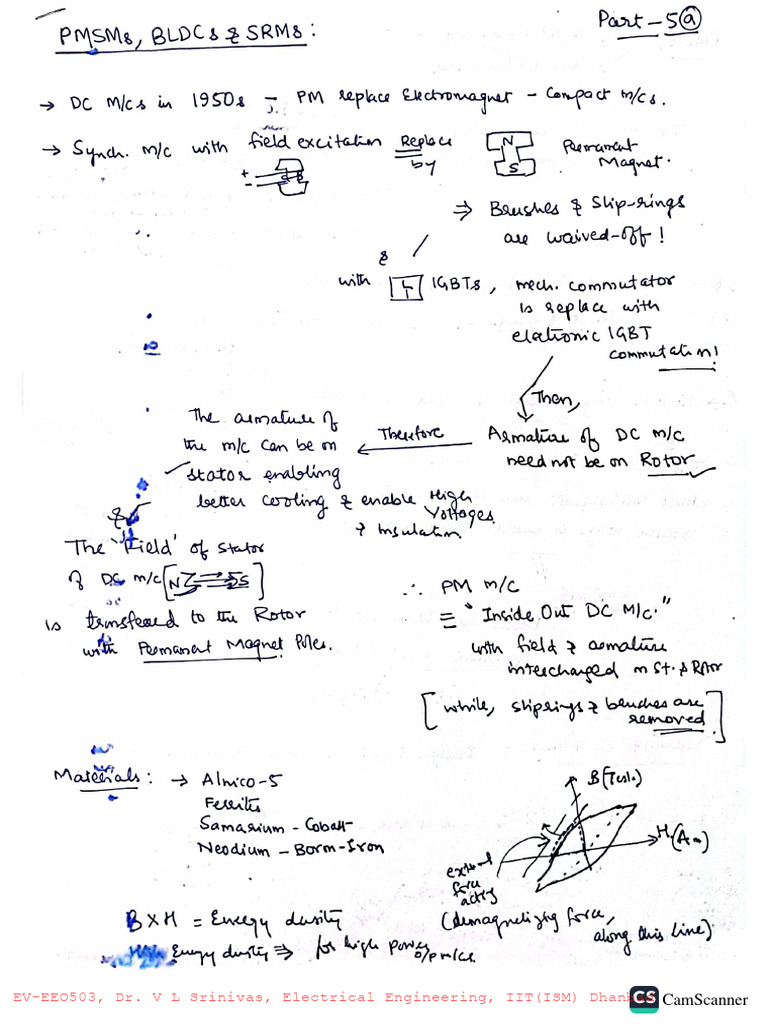 Part-5ⓐ
PMSMs, BLDCs & SRMs:
→ DC M/Cs in 1950s – PM replace Electromagnet - Compact m/cs.
→ Synch. M/C with field excitation Replace by
N
S
Permanent Magnet.
+
-
⇒ Brushes & Slip-rings
are waived-off!
&
with IGBTs, mech. commutator
is replace with
eletronic IGBT
commutation!
Then,
Armature of DC M/C
need not be on Rotor
Therefore
The armature of
the M/C can be on
stator enabling
better cooling & enable High
Voltages
& Insulation
&
The 'Field' of Stator
of DC M/C [N S]
is transfeared to the Rotor
with Permanant Magnet Poles.
∴ PM M/C
≡ "Inside Out DC M/C."
with field & armature
interchanged on St. & Rotor
[while, sliprings & brushes are
removed]
Materials: → Alnico-5
Ferrites
Samarium - Cobalt
Neodium - Borm-Iron
B(Tesla)
H(A/m)
external
force
acting
(demagnetizing force,
along this line)
B×H = Energy density
High Energy density ⇒ for high power
o/p m/cs.
EV-EEO503, Dr. V L Srinivas, Electrical Engineering, IIT(ISM)
CS CamScanner